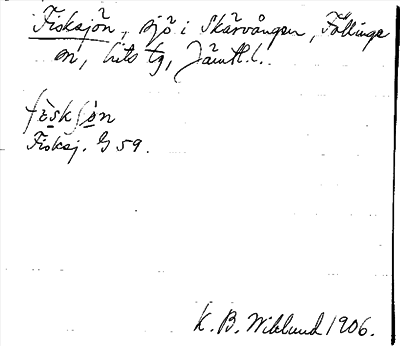 Fisksjön, sjö i Skärvången, Föllinge
sn, Lits tg, Jämtl. l.
fèskʃòn
Fisksj. G 59.
K. B. Wiklund 1906.